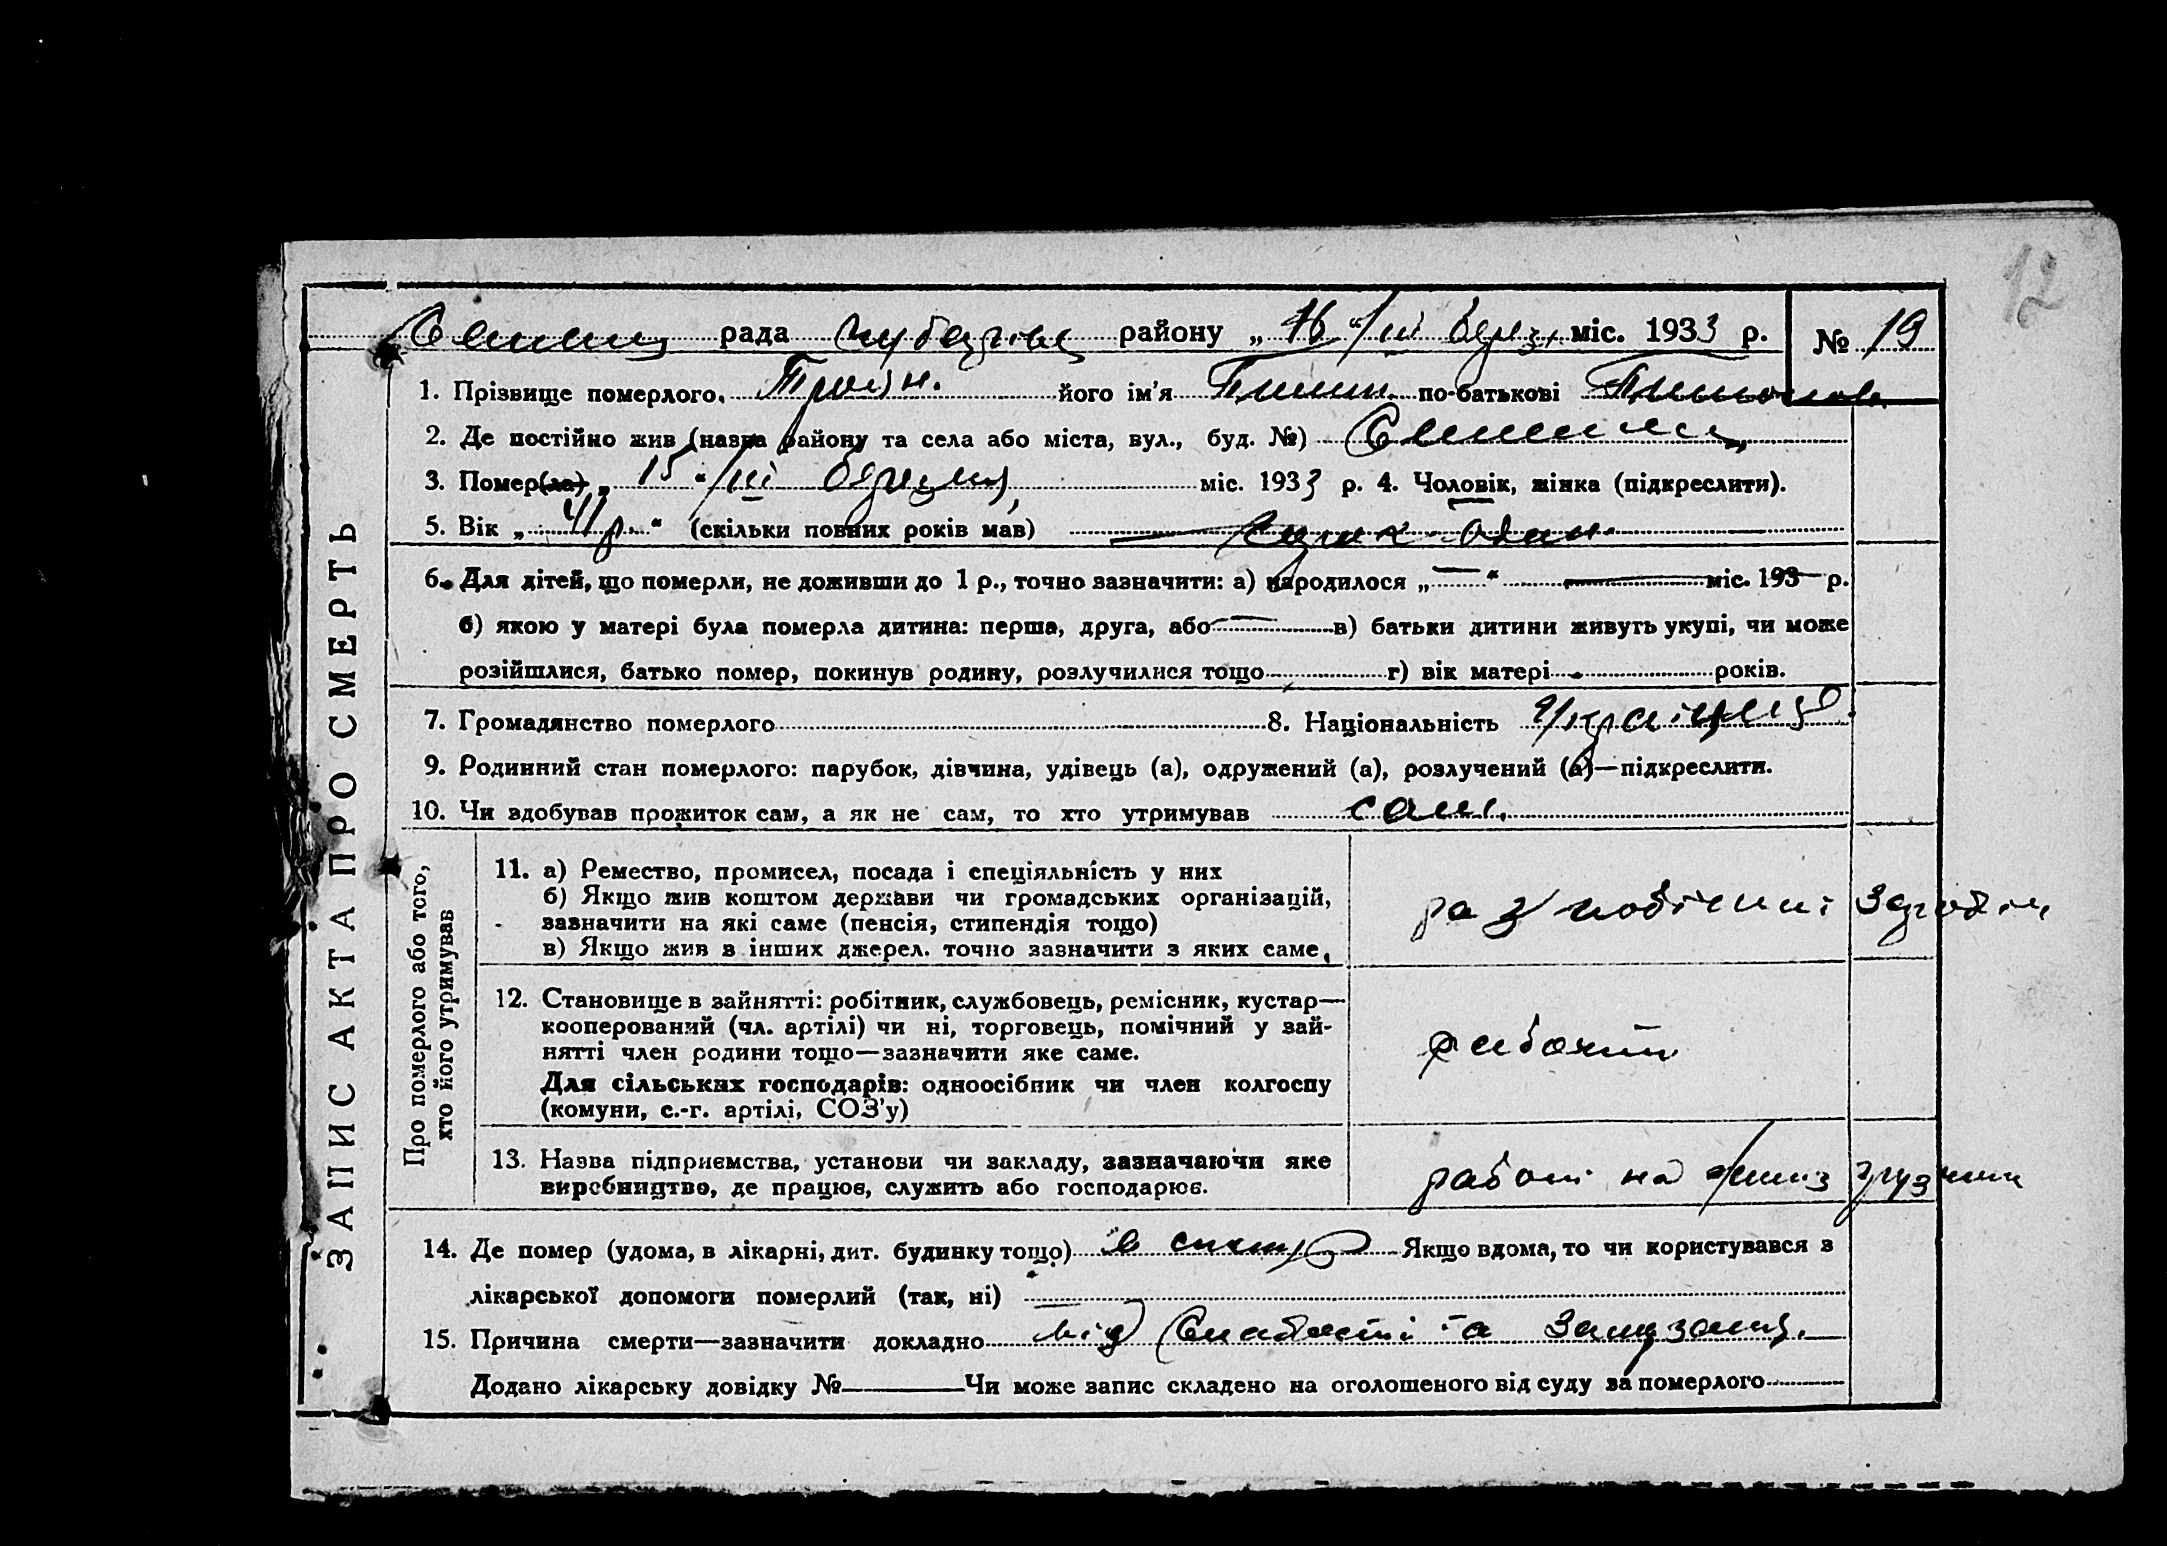 12
рада район у „ 16 “/III 1933 р. № 19
1. Прізвище померлого. Троян. його ім'я по-батькові
2. Де постійно жив (назва району та села або міста, вул., буд. №)
3. Помер(ла) „ 15 “/III березня міс. 1933 р. 4. Чоловік, жінка (підкреслити).
5. Вік „ 41 р. “ (скільки повних років мав) один.
6. Для дітей, що померли, не доживши до 1 р., точно зазначити: а) народилося „ — “ — міс. 193— р.
б) якою у матері була померла дитина: перша, друга, або — в) батьки дитини живуть укупі, чи може
розійшлися, батько помер, покинув родину, розлучилися тощо г) вік матері років.
7. Громадянство померлого 8. Національність Україн.
9. Родинний стан померлого: парубок, дівчина, удівець (а), одружений (а), розлучений (а)—підкреслити.
10. Чи здобував прожиток сам, а як не сам, то хто утримував сам.
ЗАПИС АКТА ПРО СМЕРТЬ
Про померлого або того,
хто його утримував
11. а) Ремество, промисел, посада і спеціяльність у них
б) Якщо жив коштом держави чи громадських організацій,
зазначити на які саме (пенсія, стипендія тощо)
в) Якщо жив з інших джерел. точно зазначити з яких саме.
12. Становище в зайнятті: робітник, службовець, ремісник, кустар—
кооперований (чл. артілі) чи ні, торговець, помічний у зай-
нятті член родини тощо—зазначити яке саме.
Для сільських господарів: одноосібник чи член колгоспу
(комуни, с.-г. артілі, СОЗ'у)
рабочий
13. Назва підприємства, установи чи закладу, зазначаючи яке
виробництво, де працює, служить або господарює.
на
14. Де помер (удома, в лікарні, дит. будинку тощо) в степу Якщо вдома, то чи користувався з
лікарської допомоги померлий (так, ні) —
15. Причина смерти—зазначити докладно від слабості та
Додано лікарську довідку № — Чи може запис складено на оголошеного від суду за померлого